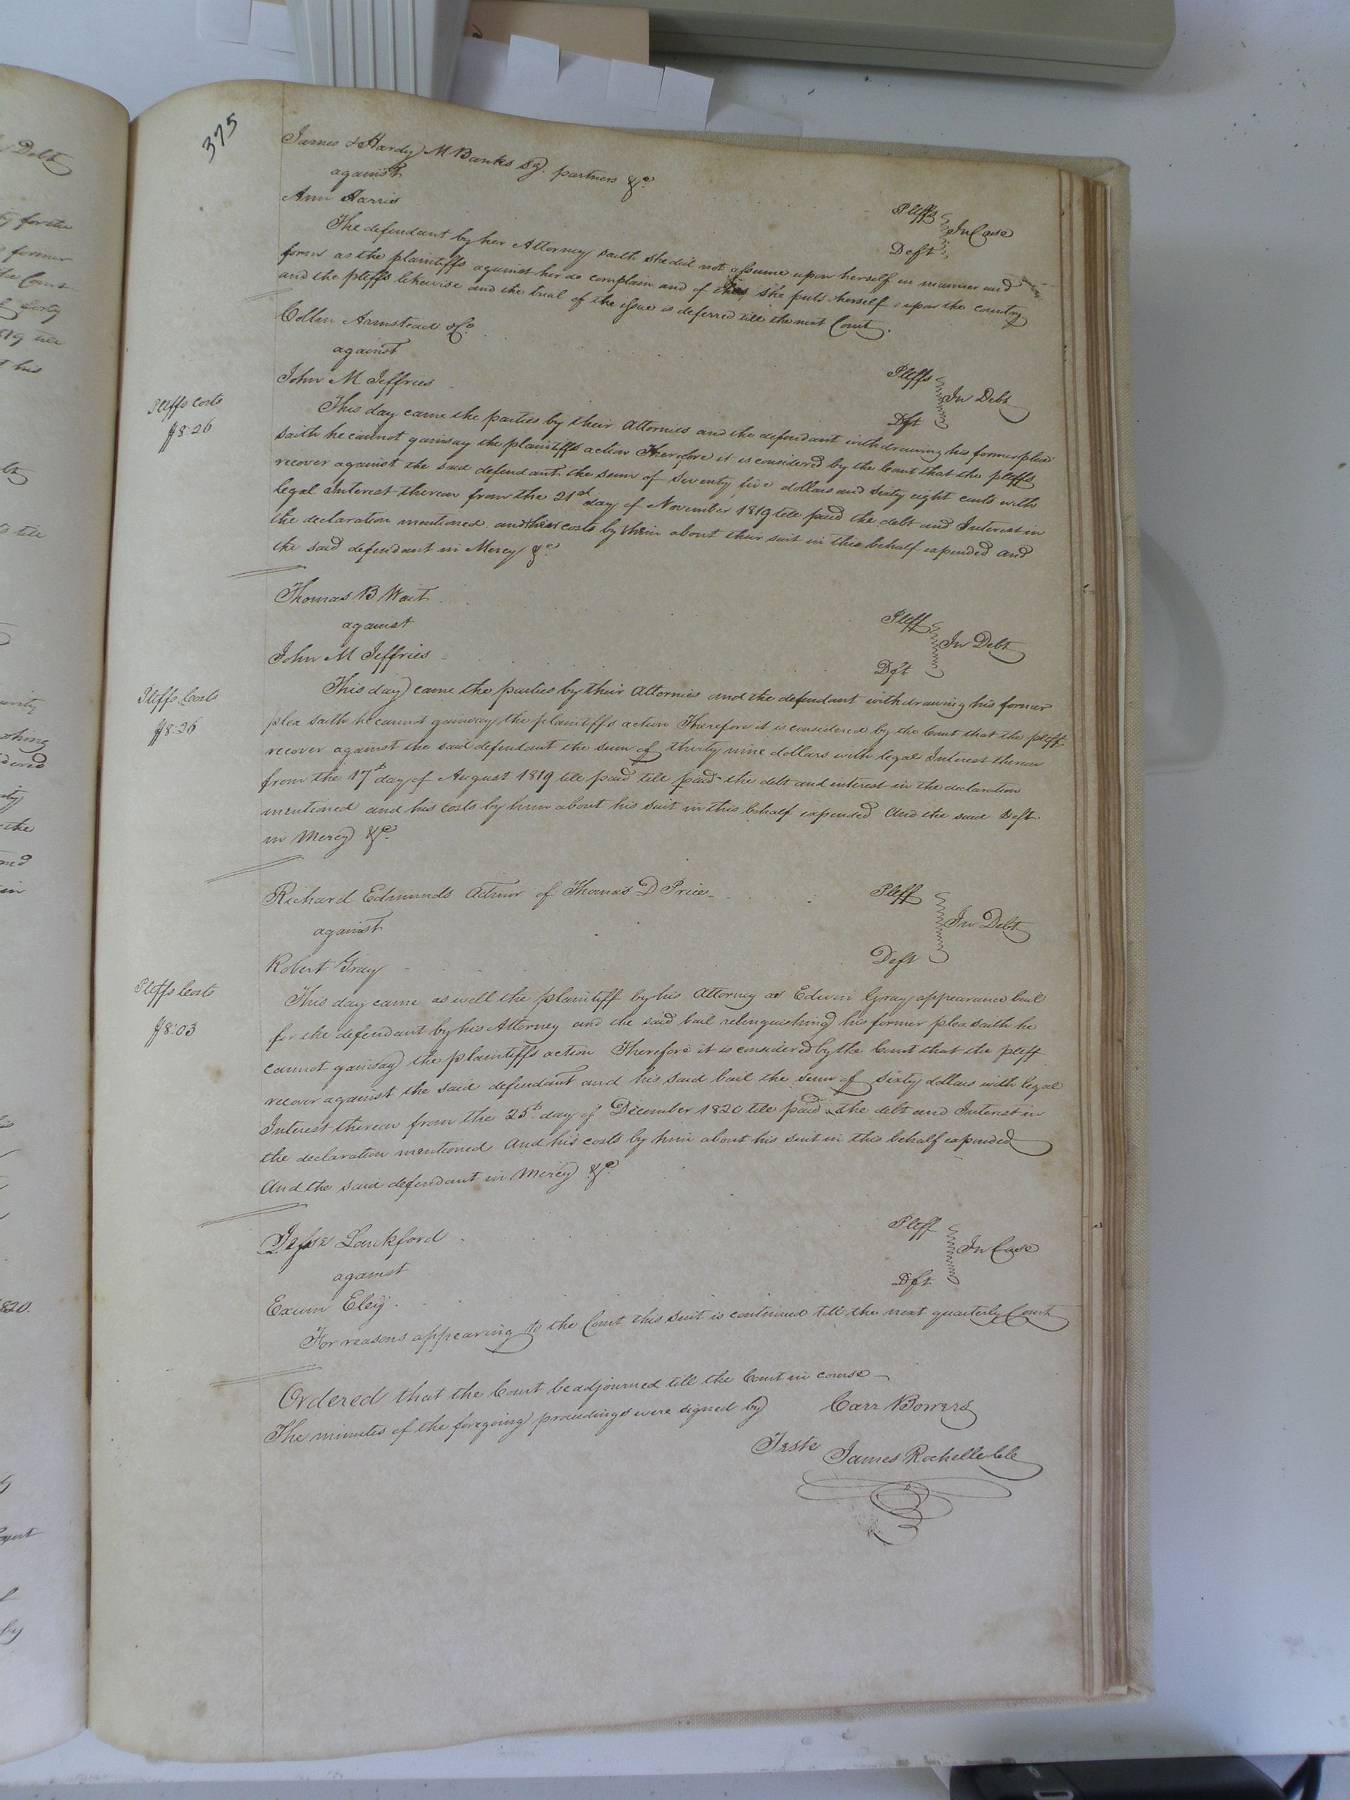 375
James & Hardy M Banks Sz. partners &c.
against
Ann Harris
Pleffs
Deft
In Case
The defendant by her Attorney saith she did not assume upon herself in manner and
form as the plaintiffs against her do complain and of this she puts herself upon the country
and the pleffs likewise and the trial of the issue is deferred till the next Court.
Collin Armstead & Co
against
John M Jeffries
Pleffs
Dft
In Debt
Pleffs costs
$8.26
This day came the parties by their Attornies and the defendant withdrawing his former plea
saith he cannot gainsay the plaintiffs action Therefore it is considered by the Court that the pleffs
recover against the said defendant the sum of Seventy five dollars and sixty eight cents with
legal Interest thereon from the 21st day of November 1819 till paid the debt and Interest in
the declaration mentioned and their costs by them about their suit in this behalf expended and
the said defendant in Mercy &c
Thomas B Wait
against
John M Jeffries
Pleff
Dft
In Debt
Pleffs Costs
$8.26
This day came the parties by their Attornies and the defendant withdrawing his former
plea saith he cannot gainsay the plaintiffs action Therefore it is considered by the Court that the pleff
recover against the said defendant the sum of thirty nine dollars with legal Interest thereon
from the 17th day of August 1819 till paid till paid the debt and interest in the declaration
mentioned and his costs by him about his suit in this behalf expended And the said Deft
in Mercy &c.
Richard Edmunds Admor of Thomas D Price
against
Robert Gray
Pleff
Deft
In Debt
Pleffs Costs
$8.03
This day came as well the plaintiff by his Attorney as Edwin Gray appearance bail
for the defendant by his Attorney and the said bail relinquishing his former plea saith he
cannot gainsay the plaintiff's action Therefore it is considered by the Court that the pleff
recover against the said defendant and his said bail the sum of sixty dollars with legal
Interest thereon from the 25th day of December 1820 till paid the debt and Interest in
the declaration mentioned And his costs by him about his suit in this behalf expended
And the said defendant in Mercy &c.
Jesse Lankford
against
Exum Eley
Pleff
Dft
In Case
For reasons appearing to the Court this suit is continued till the next quarterly Court
Ordered that the Court be adjourned till the Court in course
The minutes of the foregoing proceedings were signed by
Carr Bowers
Teste
James Rochelle Clk